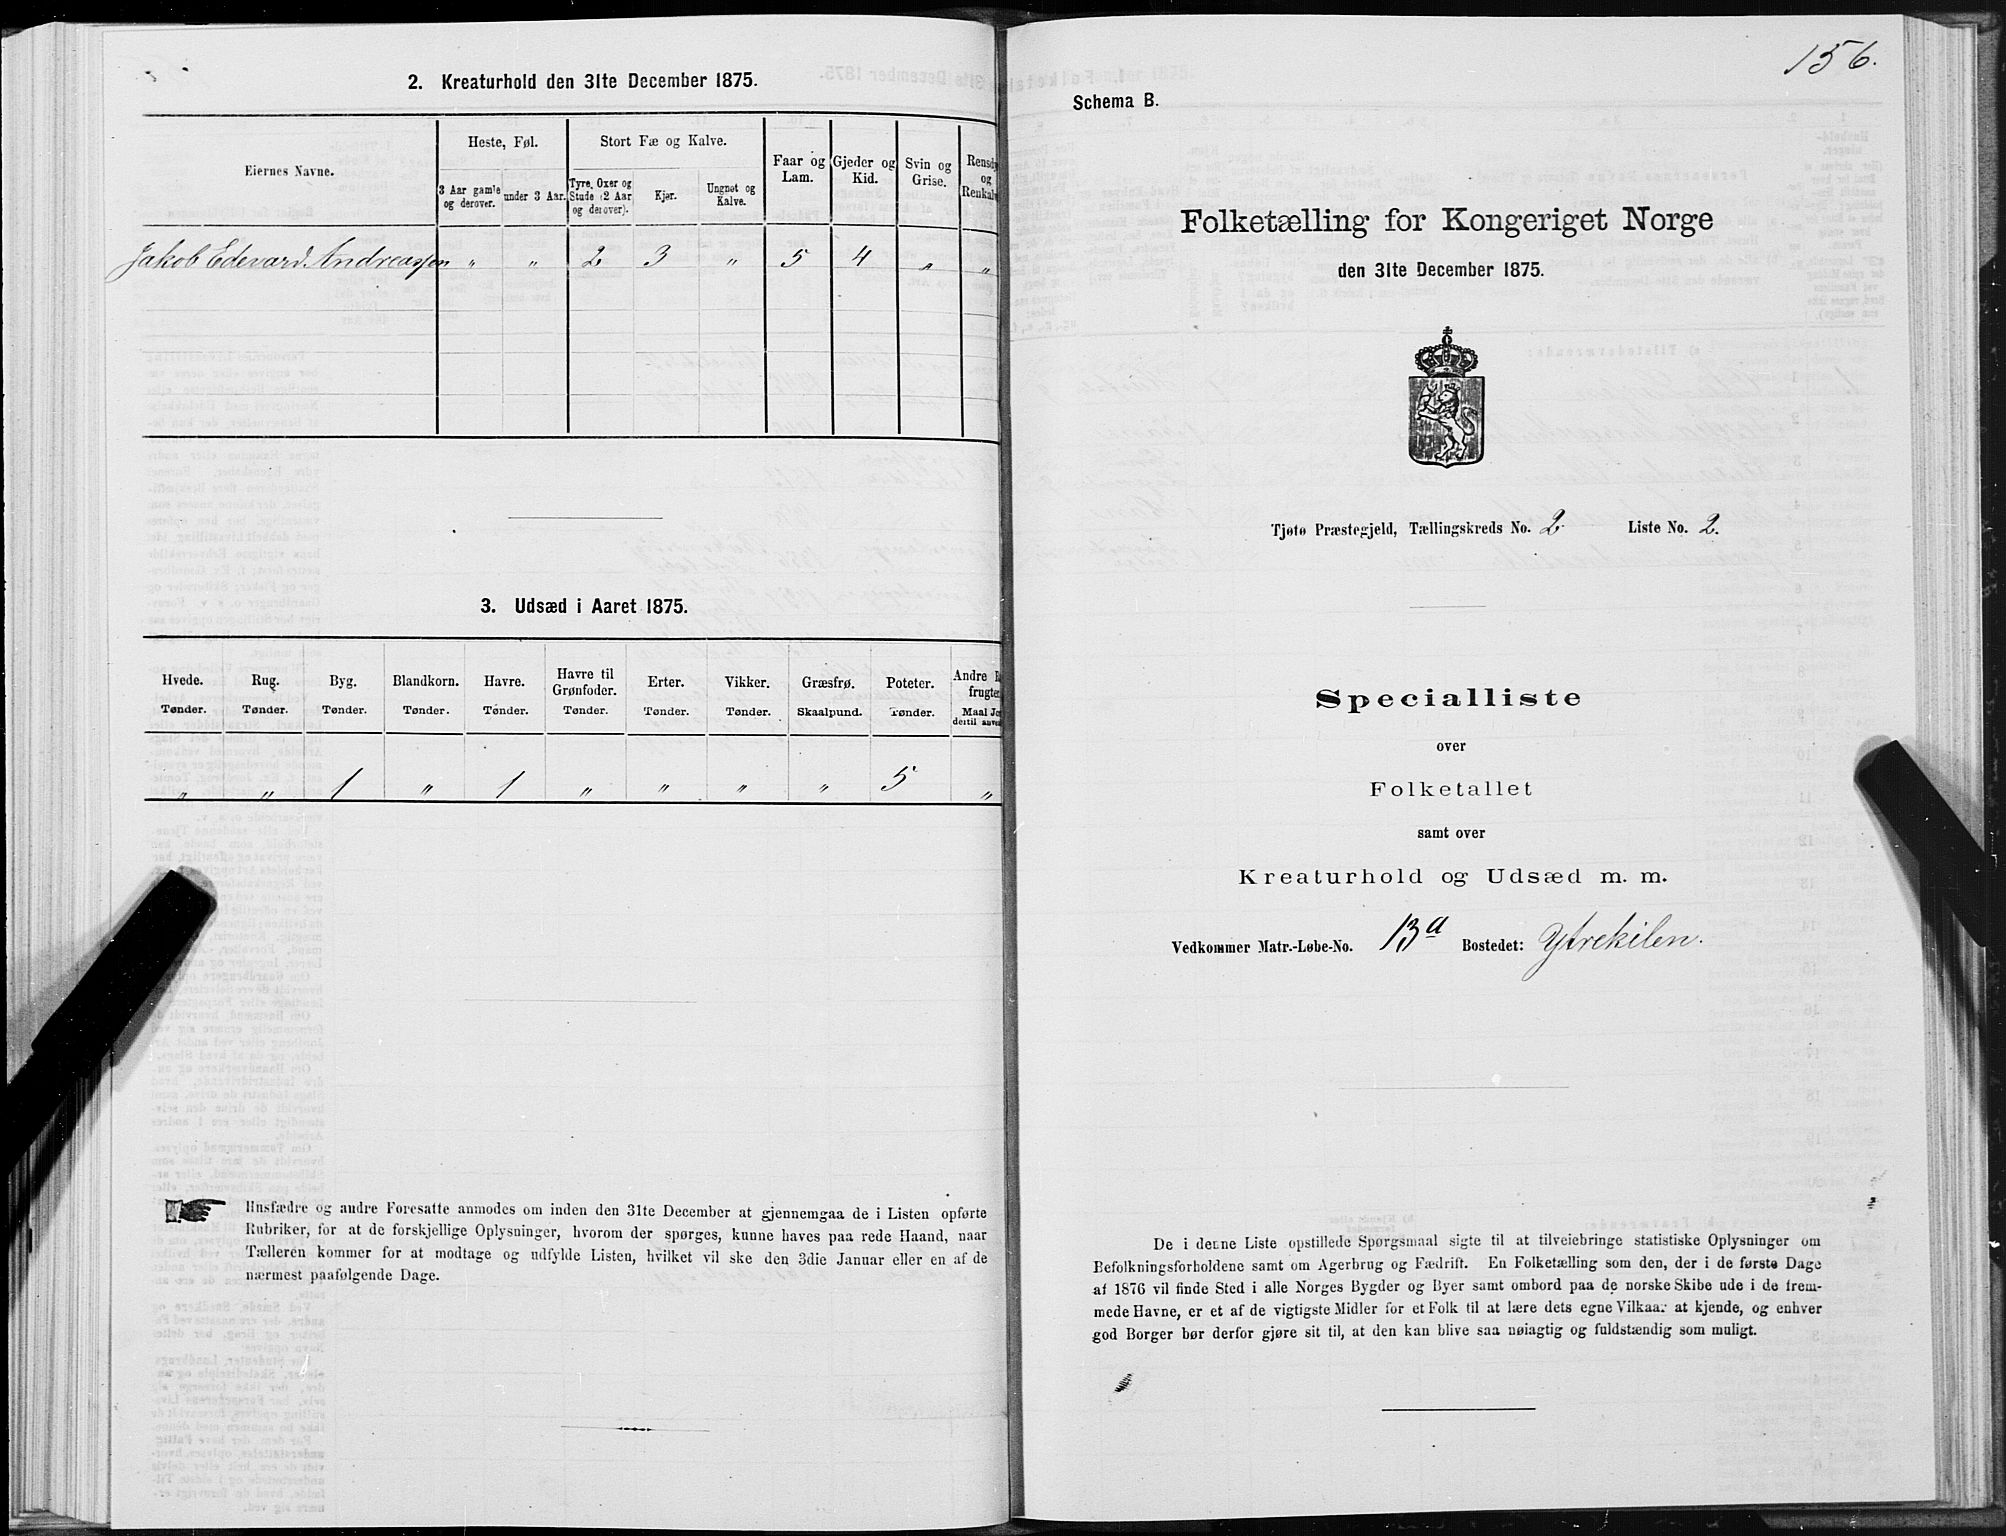 2. Kreaturhold den 31te December 1875.
Eiernes Navne.
Heste, Føl.
Stort Fæ og Kalve.
Faar og Lam.
Gjeder og Kid.
Svin og Grise.
Rensdy
og
Renkalv
3 Aar gamle og derover.
under 3 Aar.
Tyre, Oxer og Stude (2 Aar og derover).
Kjør.
Ungnøt og Kalve.
Jakob Edevard Andreassen " " 2 3 " 5 4 " "
3. Udsæd i Aaret 1875.
Hvede. Rug. Byg. Blandkorn. Havre. Havre til Grønfoder. Erter. Vikker. Græsfrø. Poteter. Andre R
frugter
Tønder. Tønder. Tønder. Tønder. Tønder. Tønder. Tønder. Tønder. Skaalpund. Tønder. Maal Jo
dertil anve
" " 1 " 1 " " " " 5 "
Husfædre og andre Foresatte anmodes om inden den 31te December at gjennemgaa de i Listen opførte
Rubriker, for at de forskjellige Oplysninger, hvorom der spørges, kunne haves paa rede Haand, naar
Tælleren kommer for at modtage og udfylde Listen, hvilket vil ske den 3die Januar eller en af de
nærmest paafølgende Dage.
156.
Schema B.
Folketælling for Kongeriget Norge
den 31te December 1875.
Tjøtø Præstegjeld, Tællingskreds No. 2. Liste No. 2.
Specialliste
over
Folketallet
samt over
Kreaturhold og Udsæd m. m.
Vedkommer Matr.-Løbe-No. 13a Bostedet: Ytrekilen.
De i denne Liste opstillede Spørgsmaal sigte til at tilveiebringe statistiske Oplysninger om
Befolkningsforholdene samt om Agerbrug og Fædrift. En Folketælling som den, der i de første Dage
af 1876 vil finde Sted i alle Norges Bygder og Byer samt ombord paa de norske Skibe ude i de frem-
mede Havne, er et af de vigtigste Midler for et Folk til at lære dets egne Vilkaar at kjende, og enhver
god Borger bør derfor gjøre sit til, at den kan blive saa nøiagtig og fuldstændig som muligt.